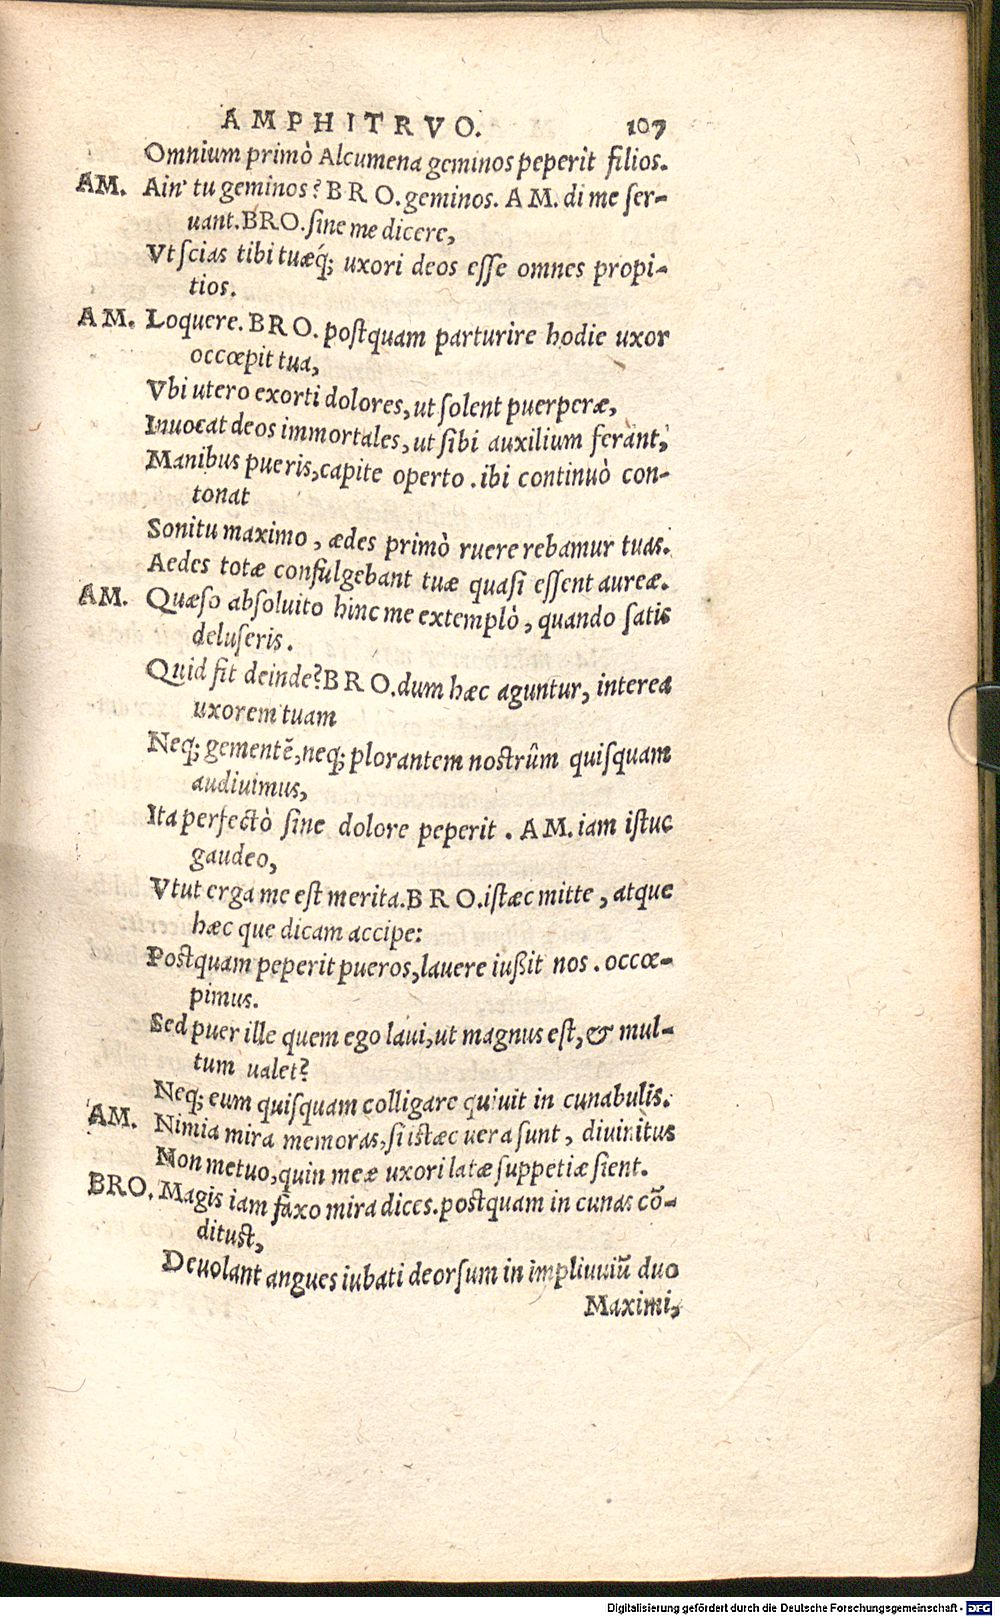 AMPHITRVO. 107
Omnium primò Alcumena geminos peperit filios.
AM. Ain' tu geminos? BRO. geminos. AM. di me ser-
uant. BRO. sine me dicere,
Vt scias tibi tuæq́; uxori deos esse omnes propi-
tios.
AM. Loquere. BRO. postquam parturire hodie uxor
occœpit tua,
Vbi utero exorti dolores, ut solent puerperæ,
Inuocat deos immortales, ut sibi auxilium ferant,
Manibus pueris, capite operto. ibi continuò con-
tonat
Sonitu maximo, ædes primò ruere rebamur tuas.
Aedes totæ confulgebant tuæ quasi essent aureæ.
AM. Quæso absoluito hinc me extemplò, quando satis
deluseris.
Quid fit deinde? BRO. dum hæc aguntur, interea
uxorem tuam
Neq; gementē, neq; plorantem nostrûm quisquam
audiuimus,
Ita perfectò sine dolore peperit. AM. iam istuc
gaudeo,
Vtut erga me est merita. BRO. istæc mitte, atque
hæc que dicam accipe:
Postquam peperit pueros, lauere iußit nos. occœ-
pimus.
Sed puer ille quem ego laui, ut magnus est, & mul-
tum ualet?
Neq; eum quisquam colligare quiuit in cunabulis.
AM. Nimia mira memoras, si istæc uera sunt, diuinitus
Non metuo, quin meæ uxori latæ suppetiæ sient.
BRO. Magis iam faxo mira dices. postquam in cunas cō-
ditust,
Deuolant angues iubati deorsum in impluuiū duo
Maximi,
Digitalisierung gefördert durch die Deutsche Forschungsgemeinschaft - DFG